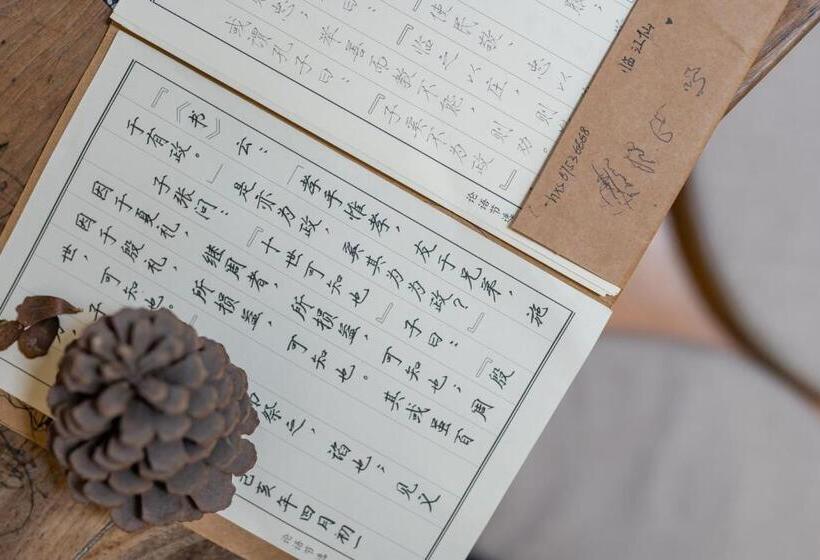 使民敬，忠以
『临之以庄，则
忠；举善而教不能，则劝。
或谓孔子曰：『子奚不为政』
论语节选
临江仙
『《书》云：『孝乎惟孝，友于兄弟，施
于有政。』是亦为政，奚其为为政？』
子张问：『十世可知也』子曰：『殷
因于夏礼，继周者，所损益，可知也；周
因于殷礼，所损益，可知也。其或至百
世，可知也。
子
祭之，谄也；见义
己亥年四月初一
论语节选